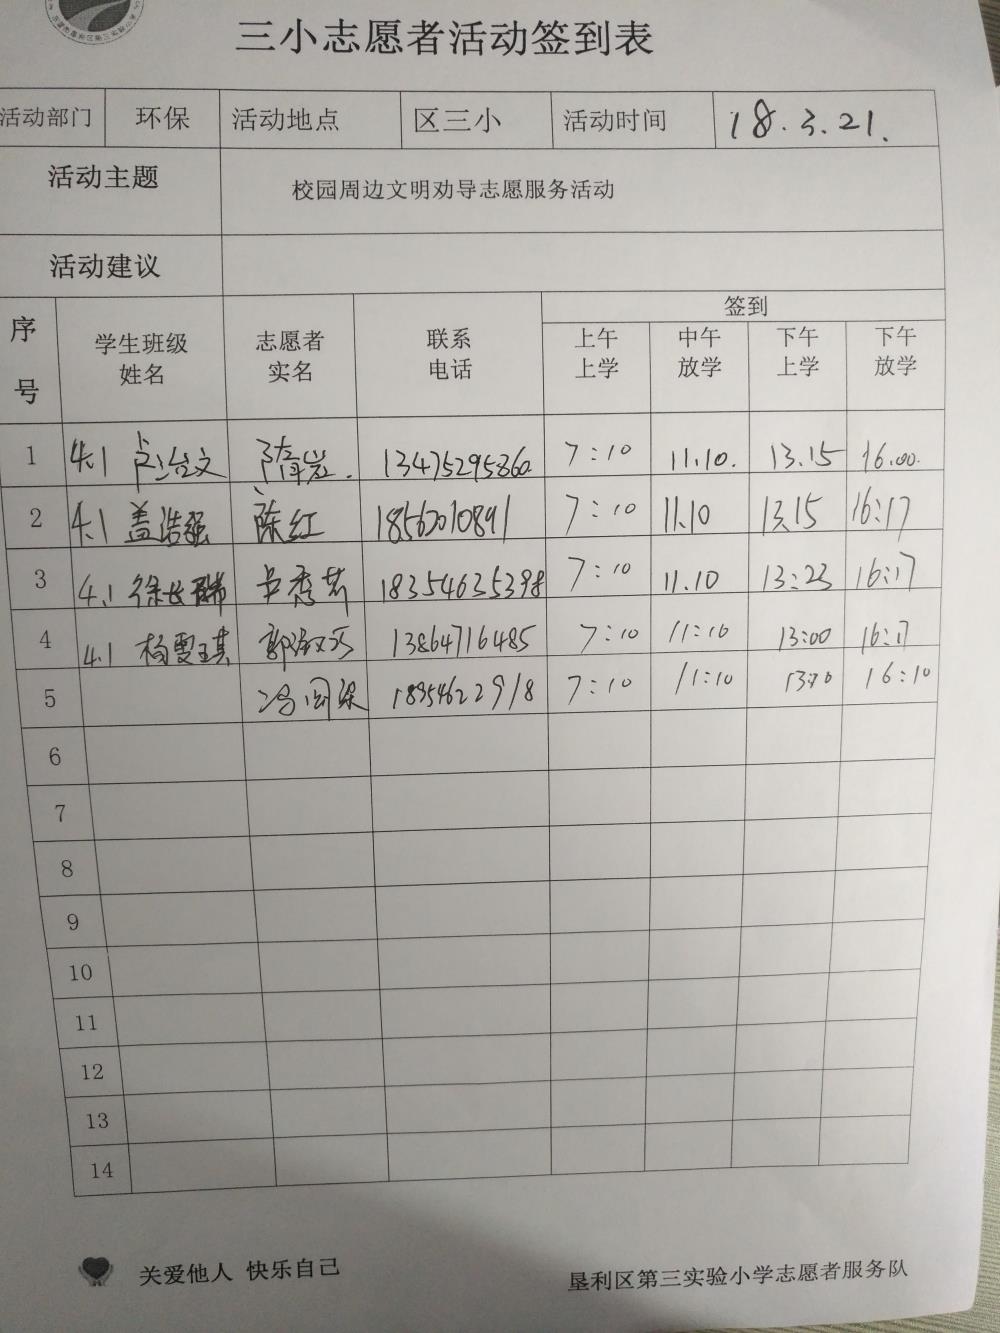 三小志愿者活动签到表
活动部门 环保 活动地点 区三小 活动时间 18.3.21.
活动主题 校园周边文明劝导志愿服务活动
活动建议
序号 学生班级姓名 志愿者实名 联系电话 签到
上午上学 中午放学 下午上学 下午放学
1 4.1 隋岩. 13475295860 7:10 11.10. 13.15 16.00.
2 4.1 盖浩强 陈红 18562010891 7:10 11.10 13.15 16:17
3 4.1 徐长瑞 18354635398 7:10 11.10 13:23 16:17
4 4.1 杨雯琪 13864716485 7:10 11:10 13:00 16:17
5 7:10 11:10 16:10
6
7
8
9
10
11
12
13
14
关爱他人 快乐自己
垦利区第三实验小学志愿者服务队